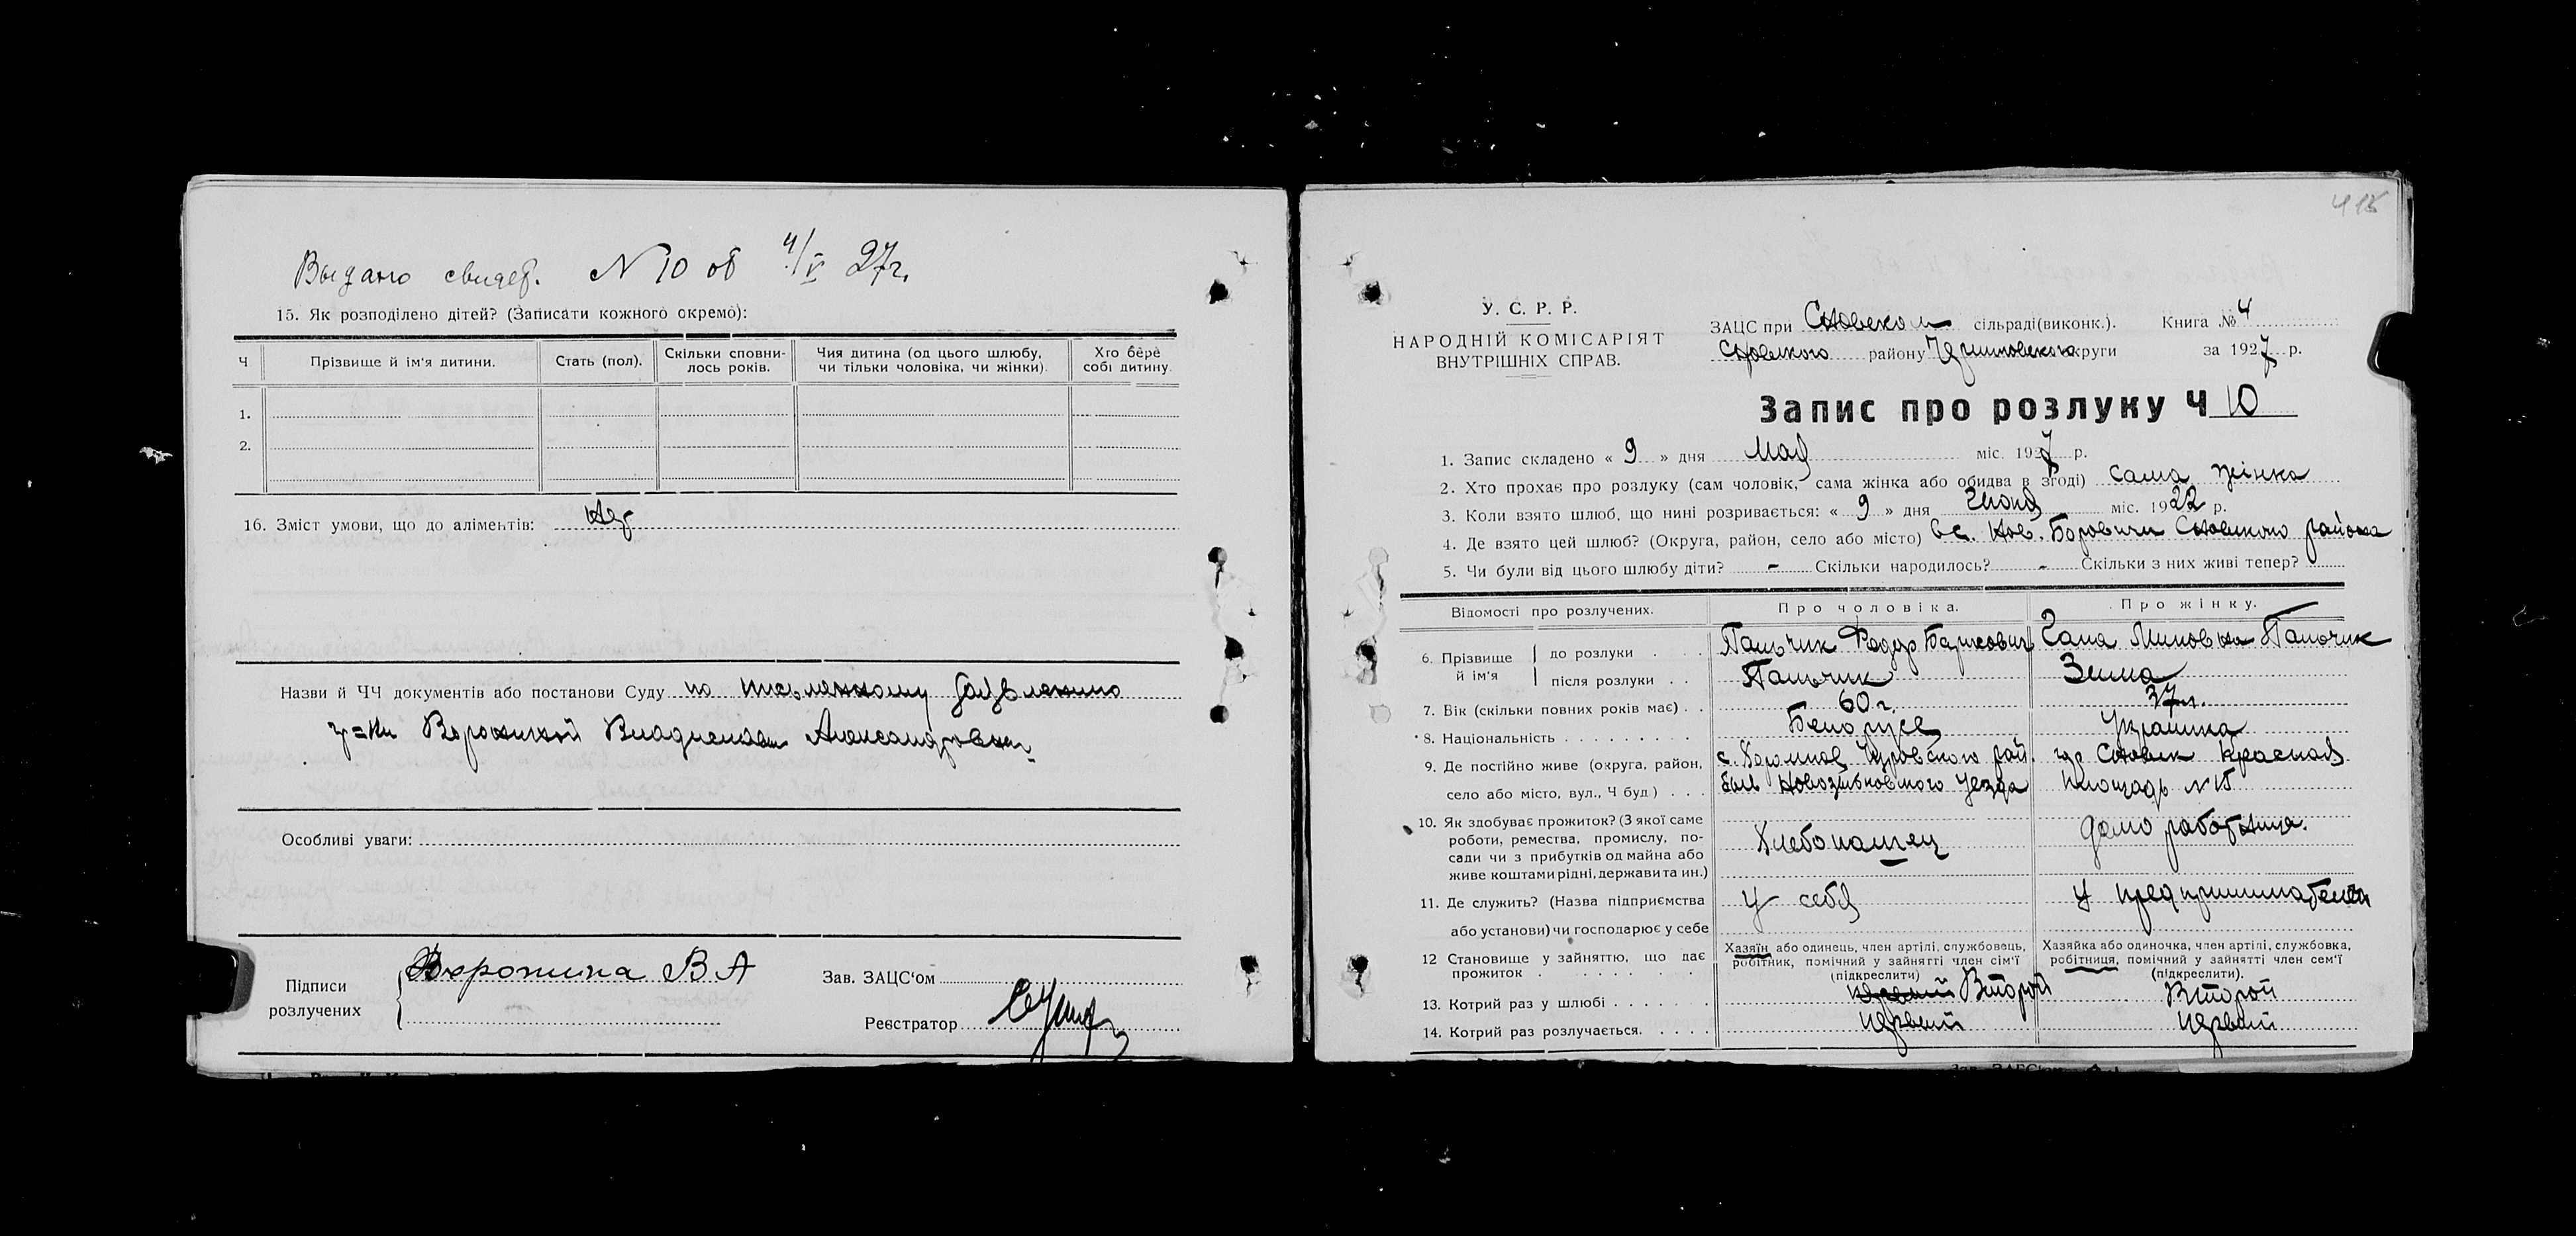 Выдано свидет. № 10 от 4/V 27 г.
15. Як розподілено дітей? (Записати кожного окремо):
Ч
Прізвище й ім'я дитини.
Стать (пол).
Скільки сповни-
лось років.
Чия дитина (од цього шлюбу,
чи тільки чоловіка, чи жінки).
Хто бере
собі дитину.
1.
2.
16. Зміст умови, що до аліментів: Нет
Назви й ЧЧ документів або постанови Суду по письменному заявлению
гр=ки Александровны
Особливі уваги:
Підписи
розлучених
Воронина В А
Зав. ЗАЦС'ом
Реєстратор
418
У. С. Р. Р.
НАРОДНІЙ КОМІСАРІЯТ
ВНУТРІШНІХ СПРАВ.
ЗАЦС при Сновском сільраді(виконк.). Книга № 4
Сновского району Черниговского округи за 1927 р.
Запис про розлуку Ч 10
1. Запис складено « 9 » дня Мая міс. 1927 р.
2. Хто прохає про розлуку (сам чоловік, сама жінка або обидва в згоді) сама жінка
3. Коли взято шлюб, що нині розривається: « 9 » дня Июня міс. 1922 р.
4. Де взято цей шлюб? (Округа, район, село або місто) в с. Нов. Боровичи Сновского района
5. Чи були від цього шлюбу діти? - Скільки народилось? - Скільки з них живі тепер?
Відомості про розлучених.
Про чоловіка.
Про жінку.
6. Прізвище й ім'я
до розлуки . . . Пальчик Федор Борисович Гапа Миновна Пальчик
після розлуки . . Пальчик Зима
7. Вік (скільки повних років має) . . 60 г. 37 г.
8. Національність . . . . . . . . . Белорусс Украинка
9. Де постійно живе (округа, район, с. Чуровского рай. гор Сновск Красная
село або місто, вул., Ч буд) . . . был Новозыбковского уезда площадь № 15
10. Як здобуває прожиток? (З якої саме
роботи, ремества, промислу, по-
сади чи з прибутків од майна або
живе коштами рідні, держави та ин.)
Хлебопашец
домработница.
11. Де служить? (Назва підприємства
або установи) чи господарює у себе
у себя
у предпринимателя
12 Становище у зайняттю, що дає
прожиток . . . . . . .
Хазяїн або одинець, член артілі, службовець,
робітник, помічний у зайнятті член сім'ї
(підкреслити)
Хазяйка або одиночка, член артілі, службовка,
робітниця, помічний у зайнятті член сем'ї
(підкреслити).
13. Котрий раз у шлюбі . . . . . . . первый Второй Второй
14. Котрий раз розлучається. . . . . первый первый